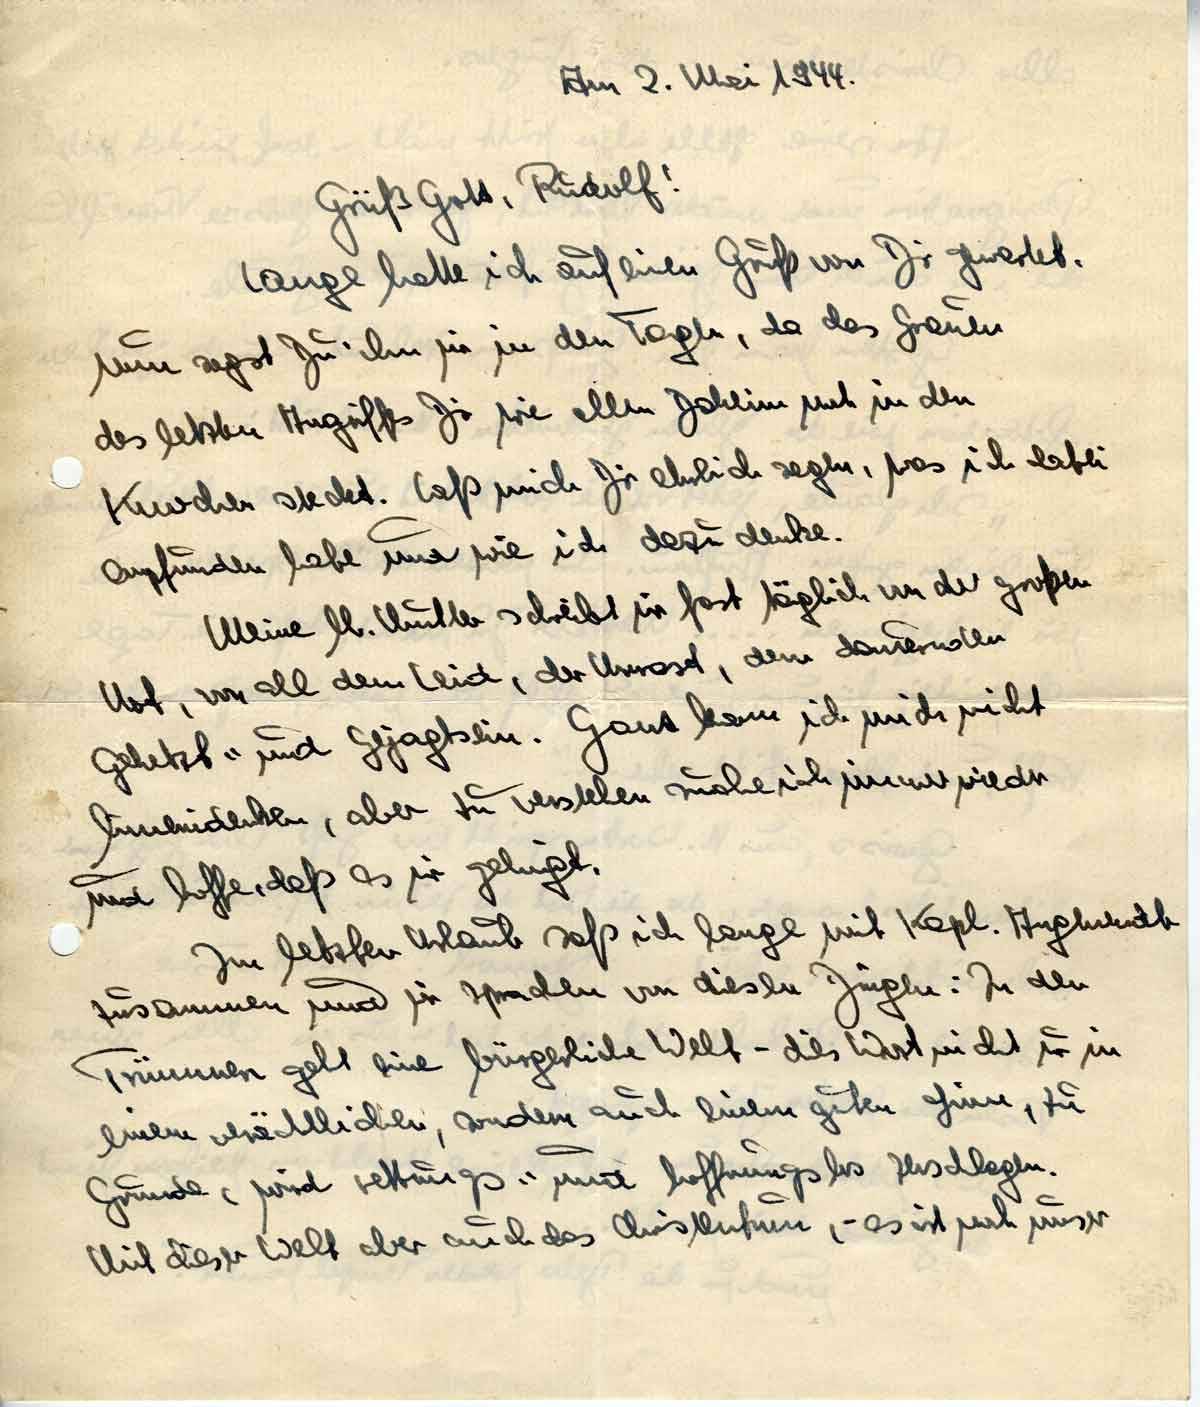 Am 2. Mai 1944.
Grüß Gott, Rudolf!
Lange hatte ich auf einen Gruß von Dir gewartet.
Nun sagst Du ihn mir in den Tagen, da das Grauen
des letzten Angriffs Dir wie allen Daheim noch in den
Knochen steckt. Laß mich Dir ehrlich sagen, was ich dabei
empfunden habe und wie ich dazu denke.
Meine lb. Mutter schreibt mir fast täglich von der großen
Not, von all dem Leid, der Unrast, dem dauernden
Gehetzt- und Gejagtsein. Ganz kann ich mich nicht
hineindenken, aber zu verstehen suche ich immer wieder
und hoffe, daß es mir gelingt.
Im letzten Urlaub saß ich lange mit Kapl.
zusammen und wir sprachen von diesen Dingen: In den
Trümmern geht eine bürgerliche Welt – dies Wort nicht nur in
einem verächtlichen, sondern auch einem guten Sinn, zu
Grunde, wird rettungs- und hoffnungslos zerschlagen.
Mit dieser Welt aber auch das Christentum, – es ist noch unser